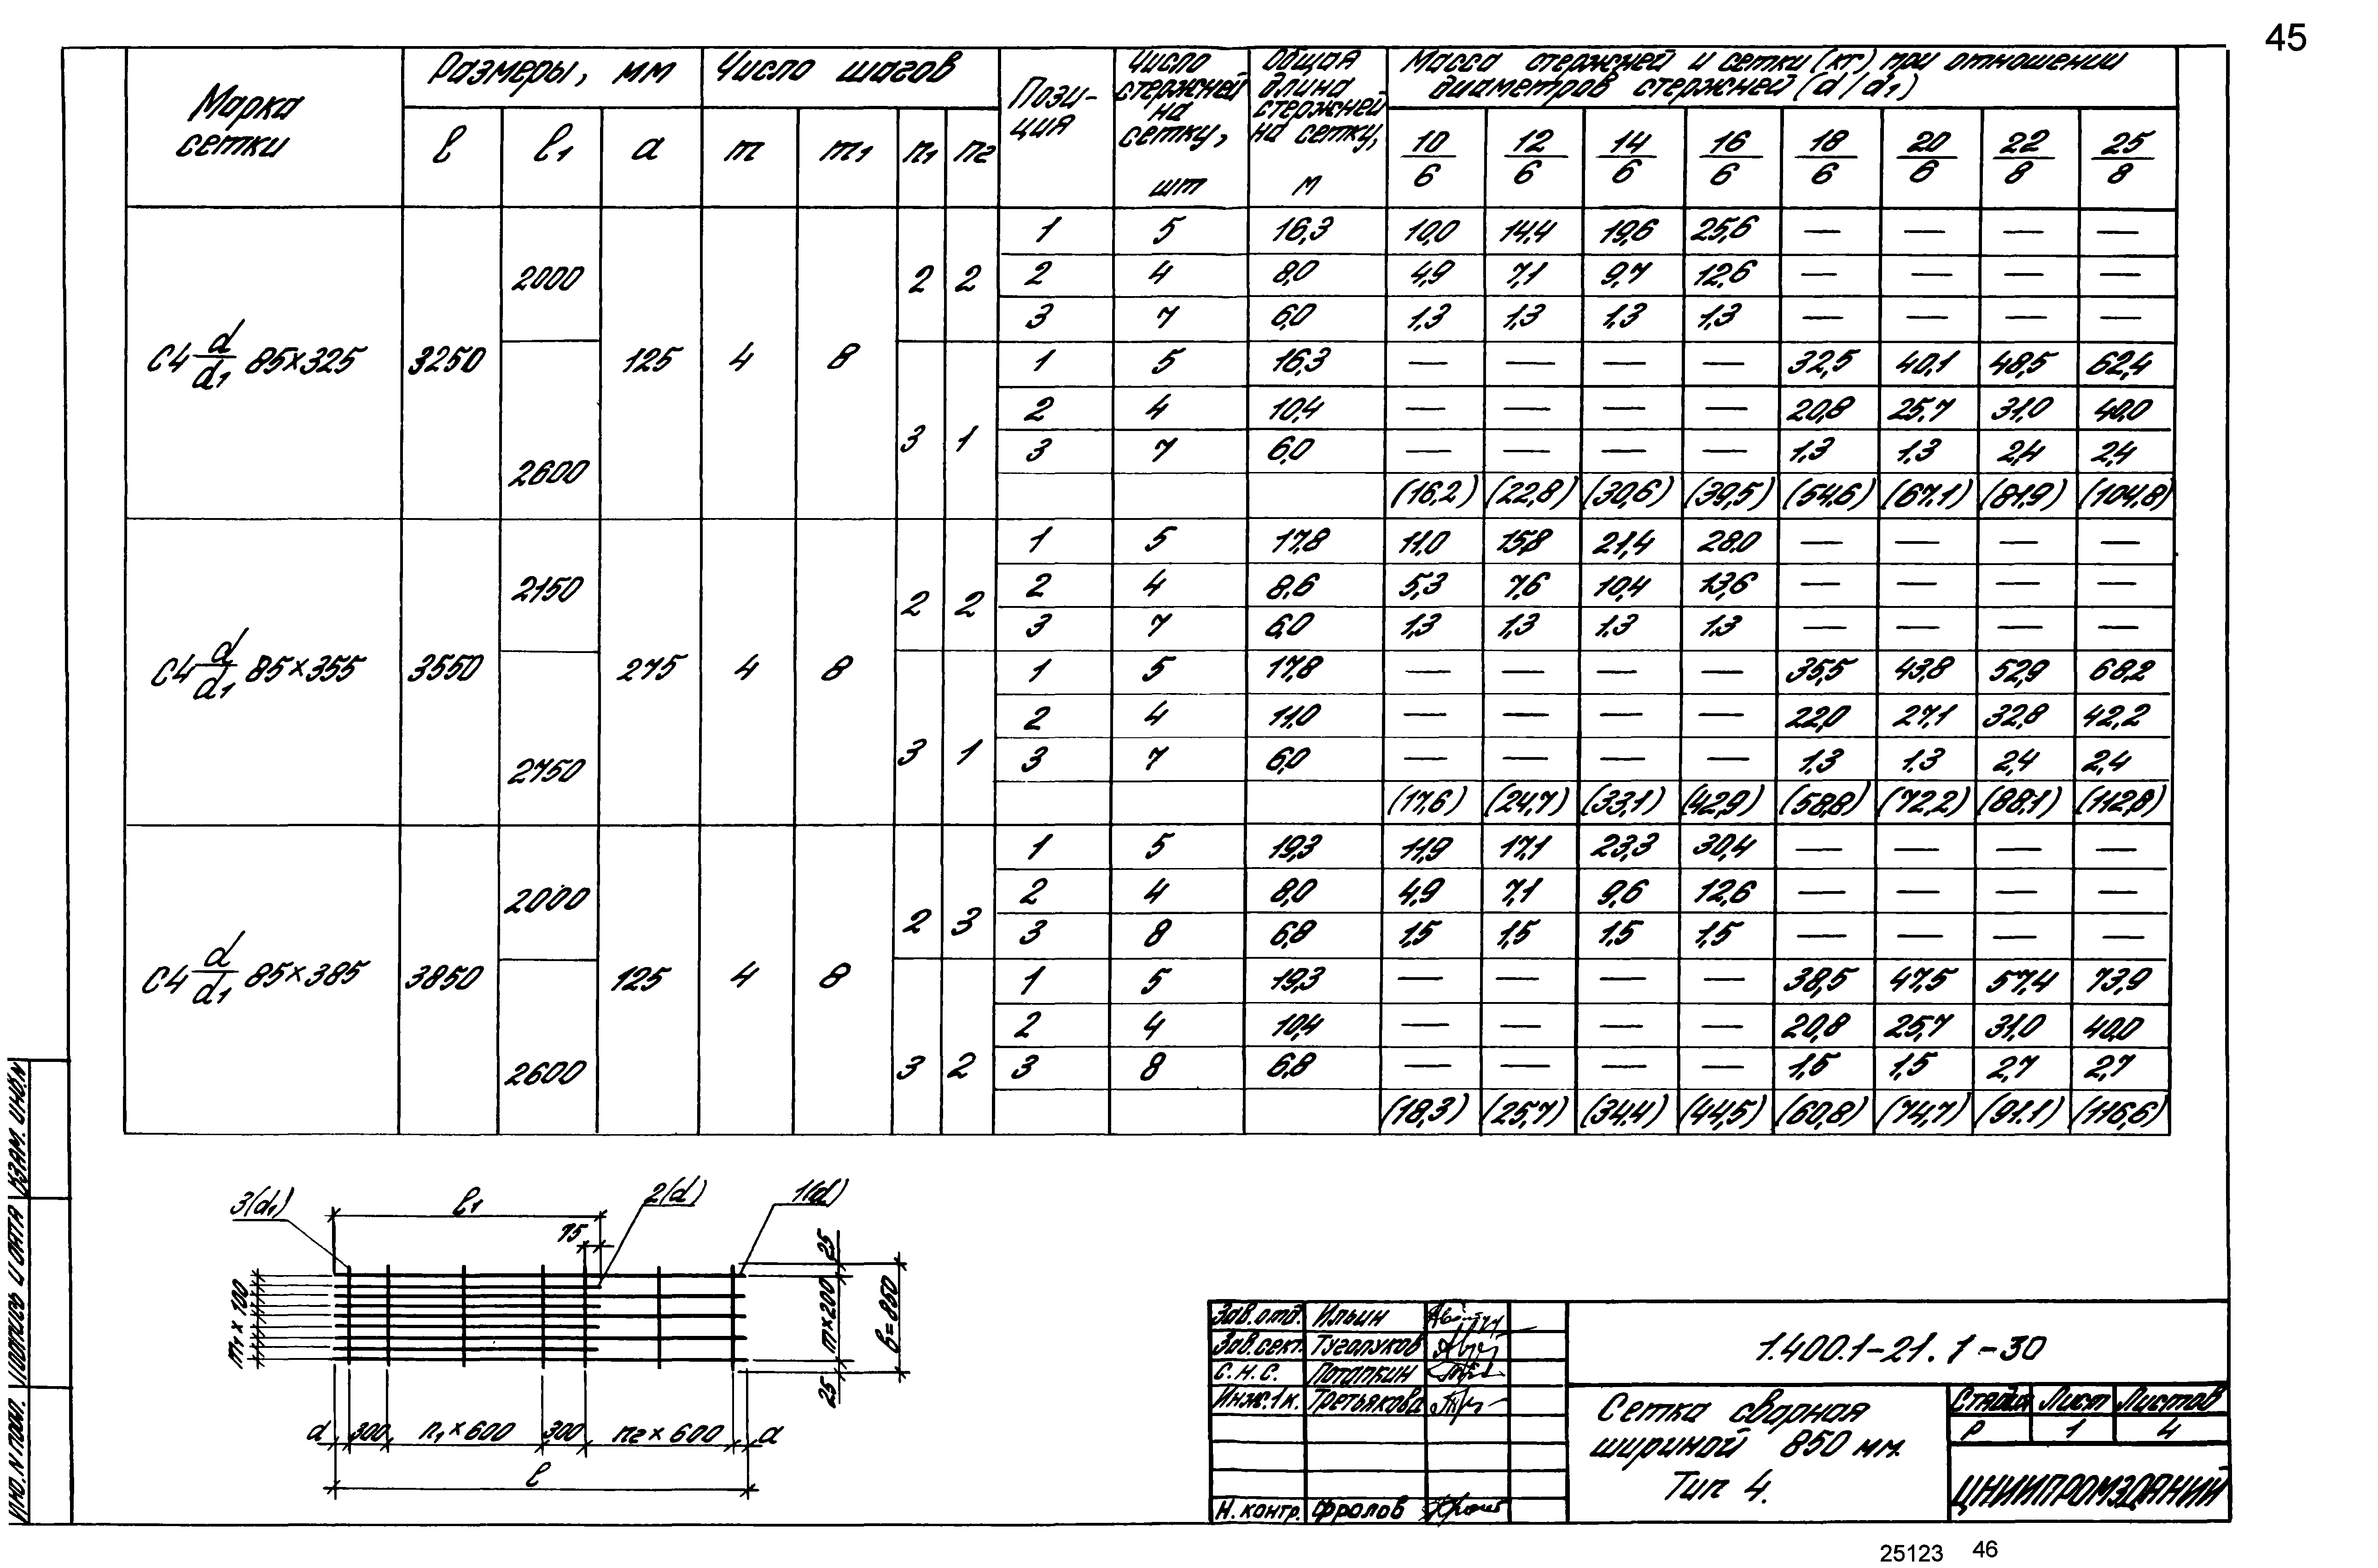 45
Марка сетки | Размеры, мм | Число шагов | Пози-ция | Число стержней на сетку, шт | Общая длина стержней на сетку, м | Масса стержней и сетки (кг) при отношении диаметров стержней (d/d1)
l | l1 | a | m | m1 | n1 | n2 | 10/6 | 12/6 | 14/6 | 16/6 | 18/6 | 20/6 | 22/8 | 25/8
С4 d/d1 85×325 | 3250 | 2000 | 125 | 4 | 8 | 2 | 2 | 1 | 5 | 16,3 | 10,0 | 14,4 | 19,6 | 25,6 | — | — | — | —
2 | 4 | 8,0 | 4,9 | 7,1 | 9,7 | 12,6 | — | — | — | —
3 | 7 | 6,0 | 1,3 | 1,3 | 1,3 | 1,3 | — | — | — | —
2600 | 3 | 1 | 1 | 5 | 16,3 | — | — | — | — | 32,5 | 40,1 | 48,5 | 62,4
2 | 4 | 10,4 | — | — | — | — | 20,8 | 25,7 | 31,0 | 40,0
3 | 7 | 6,0 | — | — | — | — | 1,3 | 1,3 | 2,4 | 2,4
(16,2) | (22,8) | (30,6) | (39,5) | (54,6) | (67,1) | (81,9) | (104,8)
С4 d/d1 85×355 | 3550 | 2150 | 275 | 4 | 8 | 2 | 2 | 1 | 5 | 17,8 | 11,0 | 15,8 | 21,4 | 28,0 | — | — | — | —
2 | 4 | 8,6 | 5,3 | 7,6 | 10,4 | 13,6 | — | — | — | —
3 | 7 | 6,0 | 1,3 | 1,3 | 1,3 | 1,3 | — | — | — | —
2750 | 3 | 1 | 1 | 5 | 17,8 | — | — | — | — | 35,5 | 43,8 | 52,9 | 68,2
2 | 4 | 11,0 | — | — | — | — | 22,0 | 27,1 | 32,8 | 42,2
3 | 7 | 6,0 | — | — | — | — | 1,3 | 1,3 | 2,4 | 2,4
(17,6) | (24,7) | (33,1) | (42,9) | (58,8) | (72,2) | (88,1) | (112,8)
С4 d/d1 85×385 | 3850 | 2000 | 125 | 4 | 8 | 2 | 3 | 1 | 5 | 19,3 | 11,9 | 17,1 | 23,3 | 30,4 | — | — | — | —
2 | 4 | 8,0 | 4,9 | 7,1 | 9,6 | 12,6 | — | — | — | —
3 | 8 | 6,8 | 1,5 | 1,5 | 1,5 | 1,5 | — | — | — | —
2600 | 3 | 2 | 1 | 5 | 19,3 | — | — | — | — | 38,5 | 47,5 | 57,4 | 73,9
2 | 4 | 10,4 | — | — | — | — | 20,8 | 25,7 | 31,0 | 40,0
3 | 8 | 6,8 | — | — | — | — | 1,5 | 1,5 | 2,7 | 2,7
(18,3) | (25,7) | (34,4) | (44,5) | (60,8) | (74,7) | (91.1) | (116,6)
3(d1) l1 2(d) 1(d)
75
25
m1×100
m×200
b=850
25
a 300 n1×600 300 n2×600 a
l
Взам. инв.N
Подпись и дата
Инв.N подл.
Зав.отд. Ильин
Зав.сект. Туголуков
С.Н.С. Потапкин
Инж.1к. Третьякова
Н.контр. Фролов
1.400.1-21.1-30
Сетка сварная
шириной 850 мм.
Тип 4.
Стадия Лист Листов
Р 1 4
ЦНИИПРОМЗДАНИЙ
25123 46